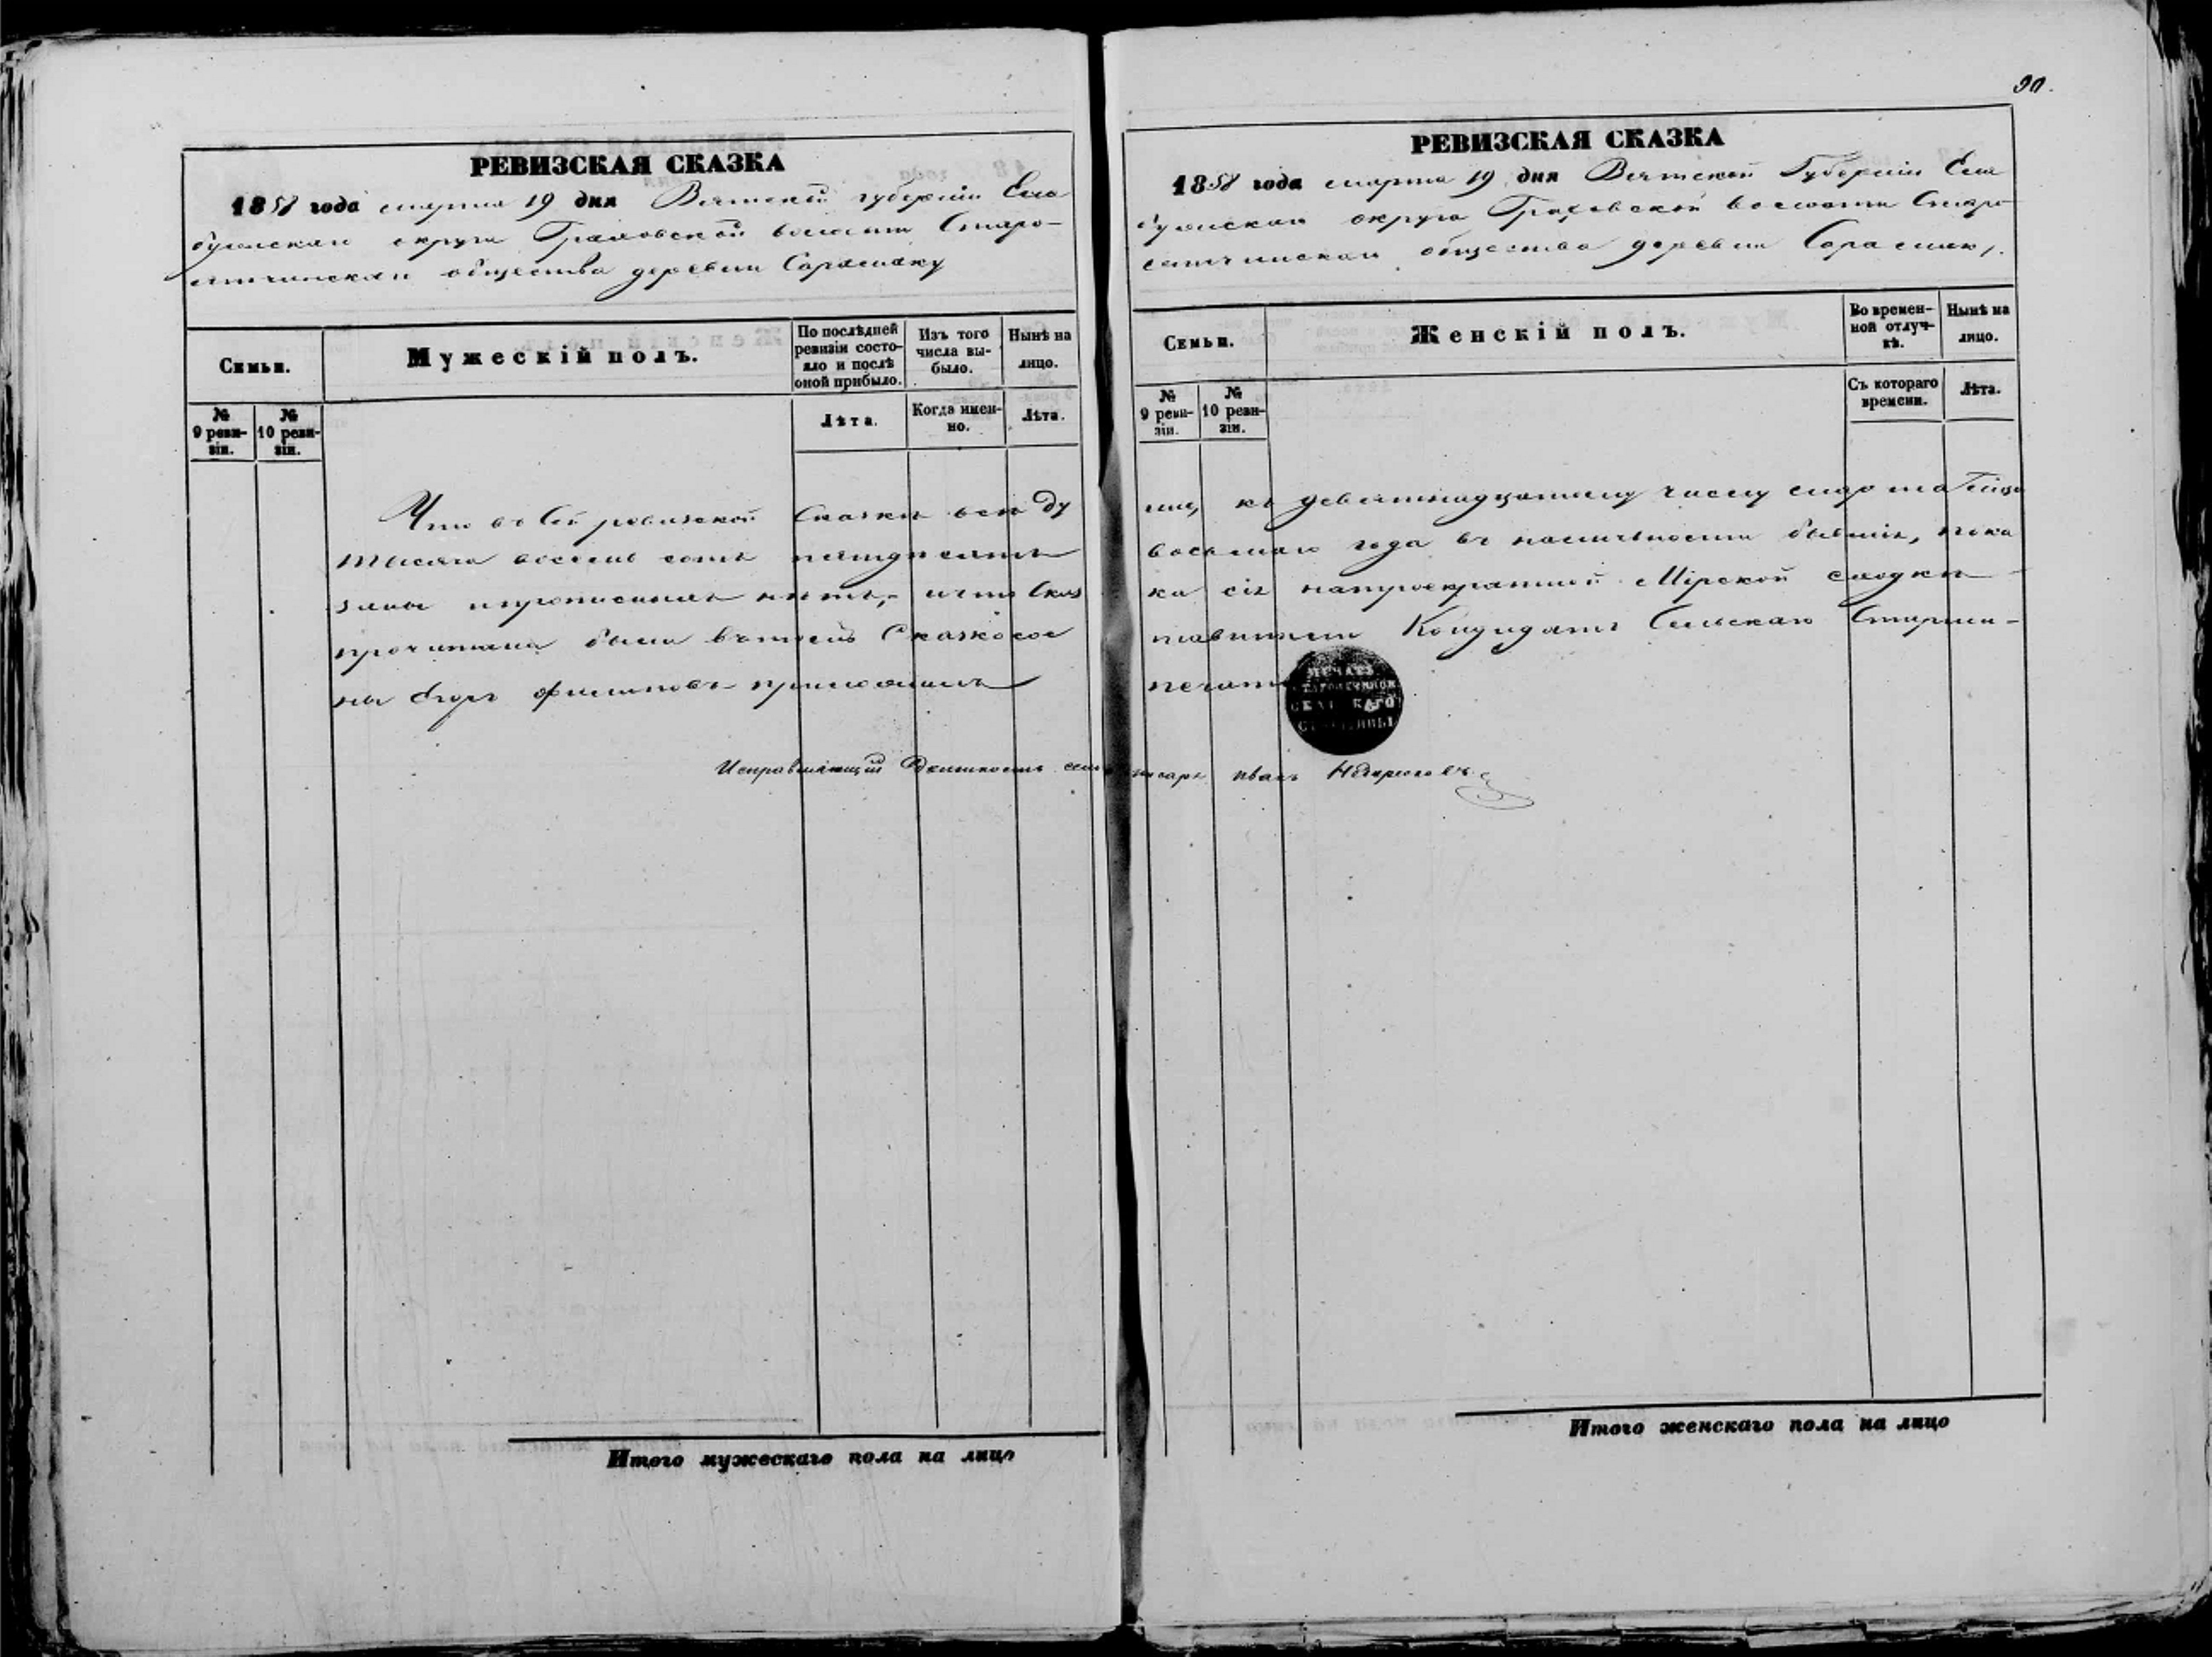 90.
РЕВИЗСКАЯ СКАЗКА
1858 года марта 19 дня Вятской губернiи Ела
бужскаго округа Граховской волости Старо-
ятчинскаго общества деревни Сарамаку
Семьи.
Мужескiй полъ.
По послѣдней
ревизiи состо-
яло и послѣ
оной прибыло.
Изъ того
числа вы-
было.
Нынѣ на
лицо.
№
9 реви-
зiи.
№
10 реви-
зiи.
Лѣта.
Когда имен-
но.
Лѣта.
Что въ сей ревизской Сказки всѣ ду
тысяча восемь сотъ пятидесятъ
заны и прописныхъ нѣтъ, и что Сказ
прочитана была въ томъ
на Егоръ Филиповъ приложилъ
Исправляющий Должность сель
Итого мужескаго пола на лицо
РЕВИЗСКАЯ СКАЗКА
1858 года марта 19 дня Вятской Губернiи Ела
бужскаго округа Граховской волости Старо
ятчинскаго общества деревни Сарамаку.
Семьи.
Женскiй полъ.
Во времен-
ной отлуч-
кѣ.
Нынѣ на
лицо.
№
9 реви-
зiи.
№
10 реви-
зiи.
Съ котораго
времени.
Лѣта.
ши, къ девятнадцатому числу марта
восьмаго года въ наличности бывшiя, пока
ка сiя Мiрской сходки
Кондидатъ Сельскаго Старши-
печать
ПЕЧАТЬ
СТАРШИНЫ
писаря иванъ
Итого женскаго пола на лицо